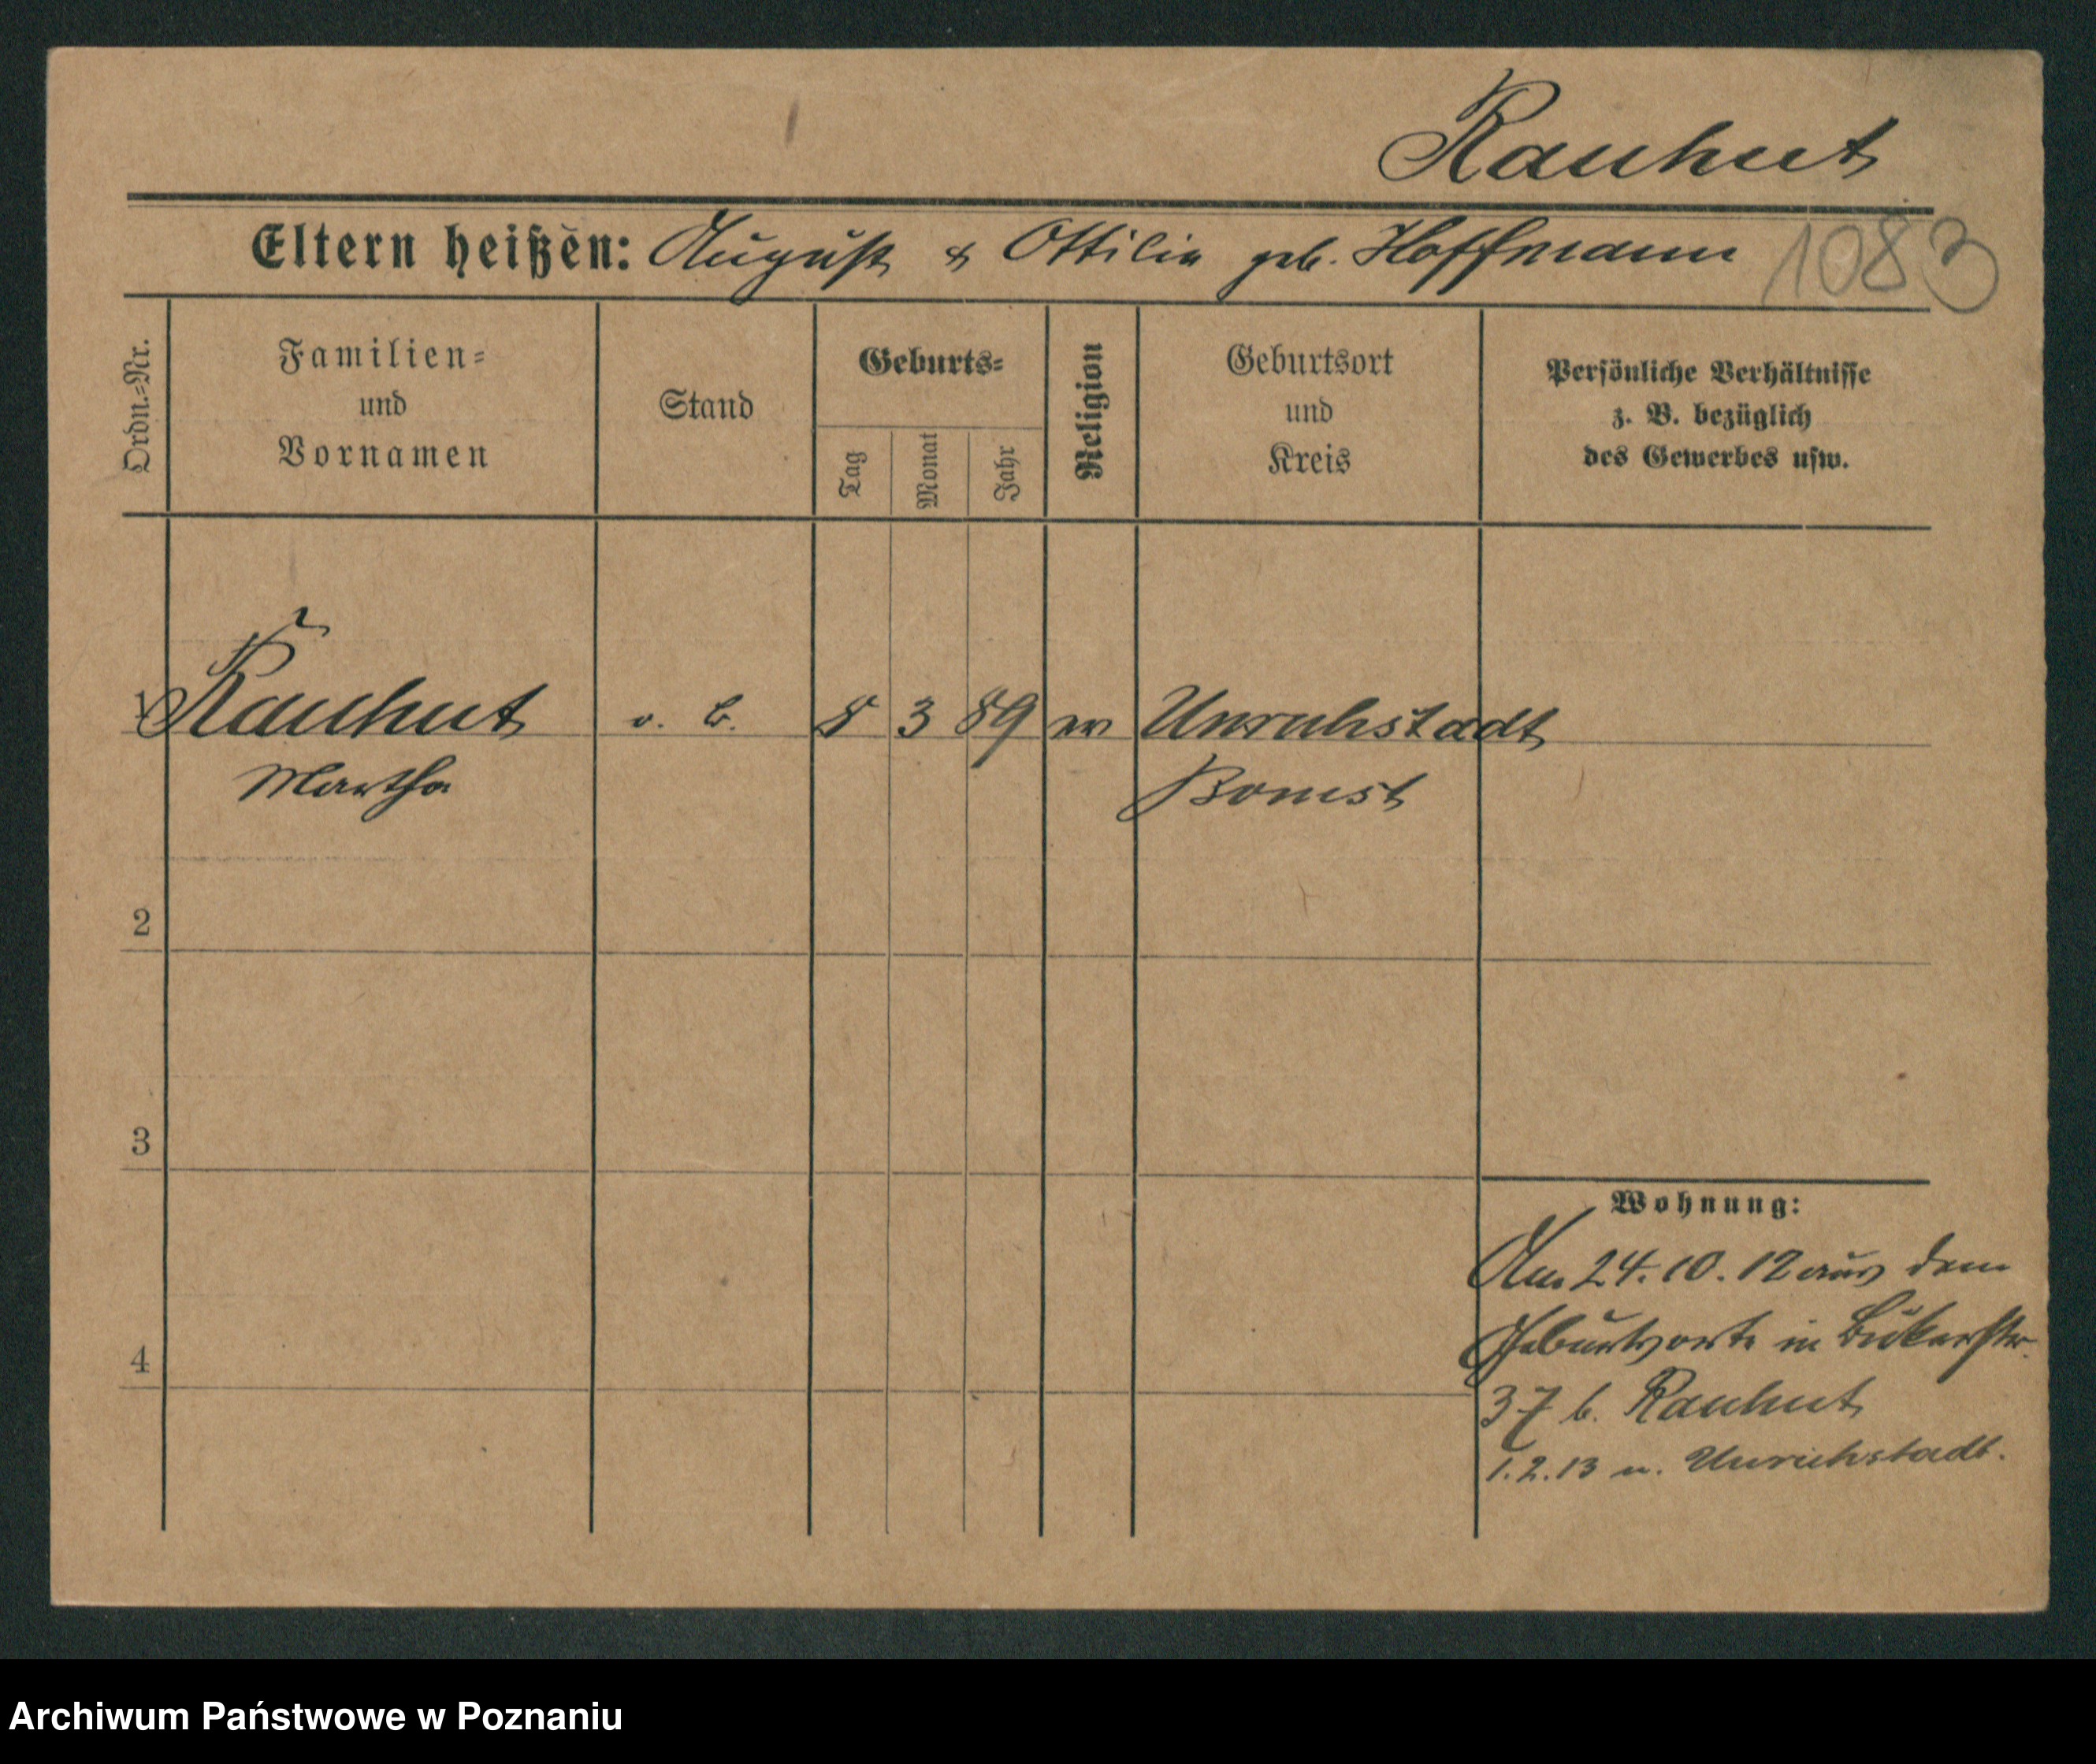 Rauhut
Eltern heißen: August & Ottilie geb. Hoffmann 1083
Ordn.=Nr.
Familien=
und
Vornamen
Stand
Geburts=
Tag
Monat
Jahr
Religion
Geburtsort
und
Kreis
Persönliche Verhältnisse
z. B. bezüglich
des Gewerbes usw.
1 Rauhut o. b. 8 3 89 ev Unruhstadt
Martha Bomst
2
3
4
Wohnung:
Am 24.10.12 aus dem
Geburtsorte in
37 b. Rauhut
1.2.13 n. Unruhstadt.
Archiwum Państwowe w Poznaniu